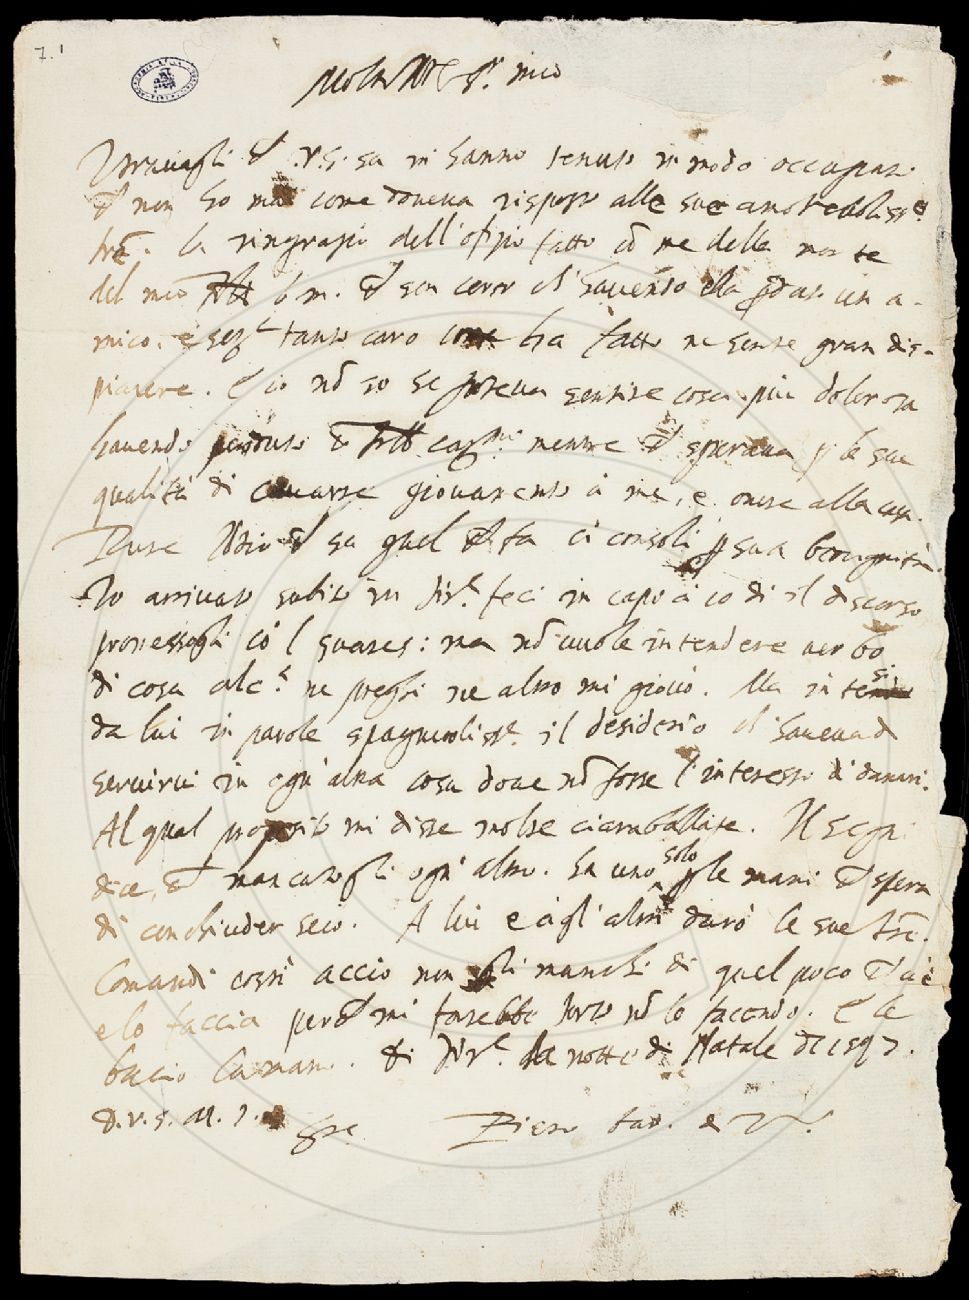 7.1
Molto Ill.re S.r mio
Travagli ch V.S. sa m'hanno tenuto in modo occupato
ch non ho mai come doveva risposto alle sue amorevoliss.e
lre. la ringrazio dell'ofizio fatto cō me della morte
del mio b.m. ch son certo ch'havendo ella pduto un a-
mico, e tanto caro ha fatto ne sente gran dis-
piacere. E io nō so se poteva sentire cosa più dolorosa
havendo perduto mentre ch sperava p le sue
qualità di cavarne giovamento à me, e onore alla casa.
Pure Iddio ch sa quel ch fa ci consoli p sua benignità.
Io arrivato subito in Fir.e feci in capo à co di il discorso
promessogli cō l suares: ma nō vuole intendere verbo
di cosa alc.a ne preghi ne altro mi giovò. Ma intesi
da lui in parole spagnuoliss.e il desiderio ch'haveva d
servirvi in ogn'altra cosa dove nō fosse l'interesse di danari.
Al qual proposito mi disse molte ciarabattate. Il segni
dice, ch mancatogli ogn'altro. ha uno solo p le mani ch spera
di conchiuder seco. A lui e à gl'altri darò le sue lre.
Comandi cossì acciò non gli manchi di quel poco ch
e lo faccia perch mi farebbe torto nō lo facendo. E le
bacio la mano. di Fir.e la notte di Natale del 1597.
D.V.S. M. I.
Piero